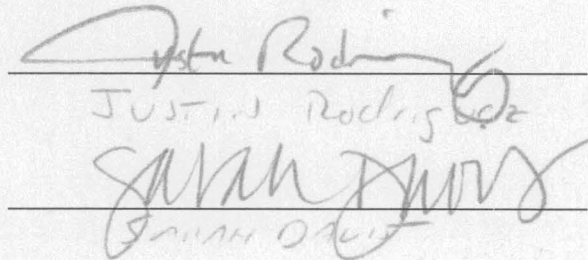 Justin Rodriguez
JUSTIN Rodriguez
Sarah Davis
SARAH DAVIS